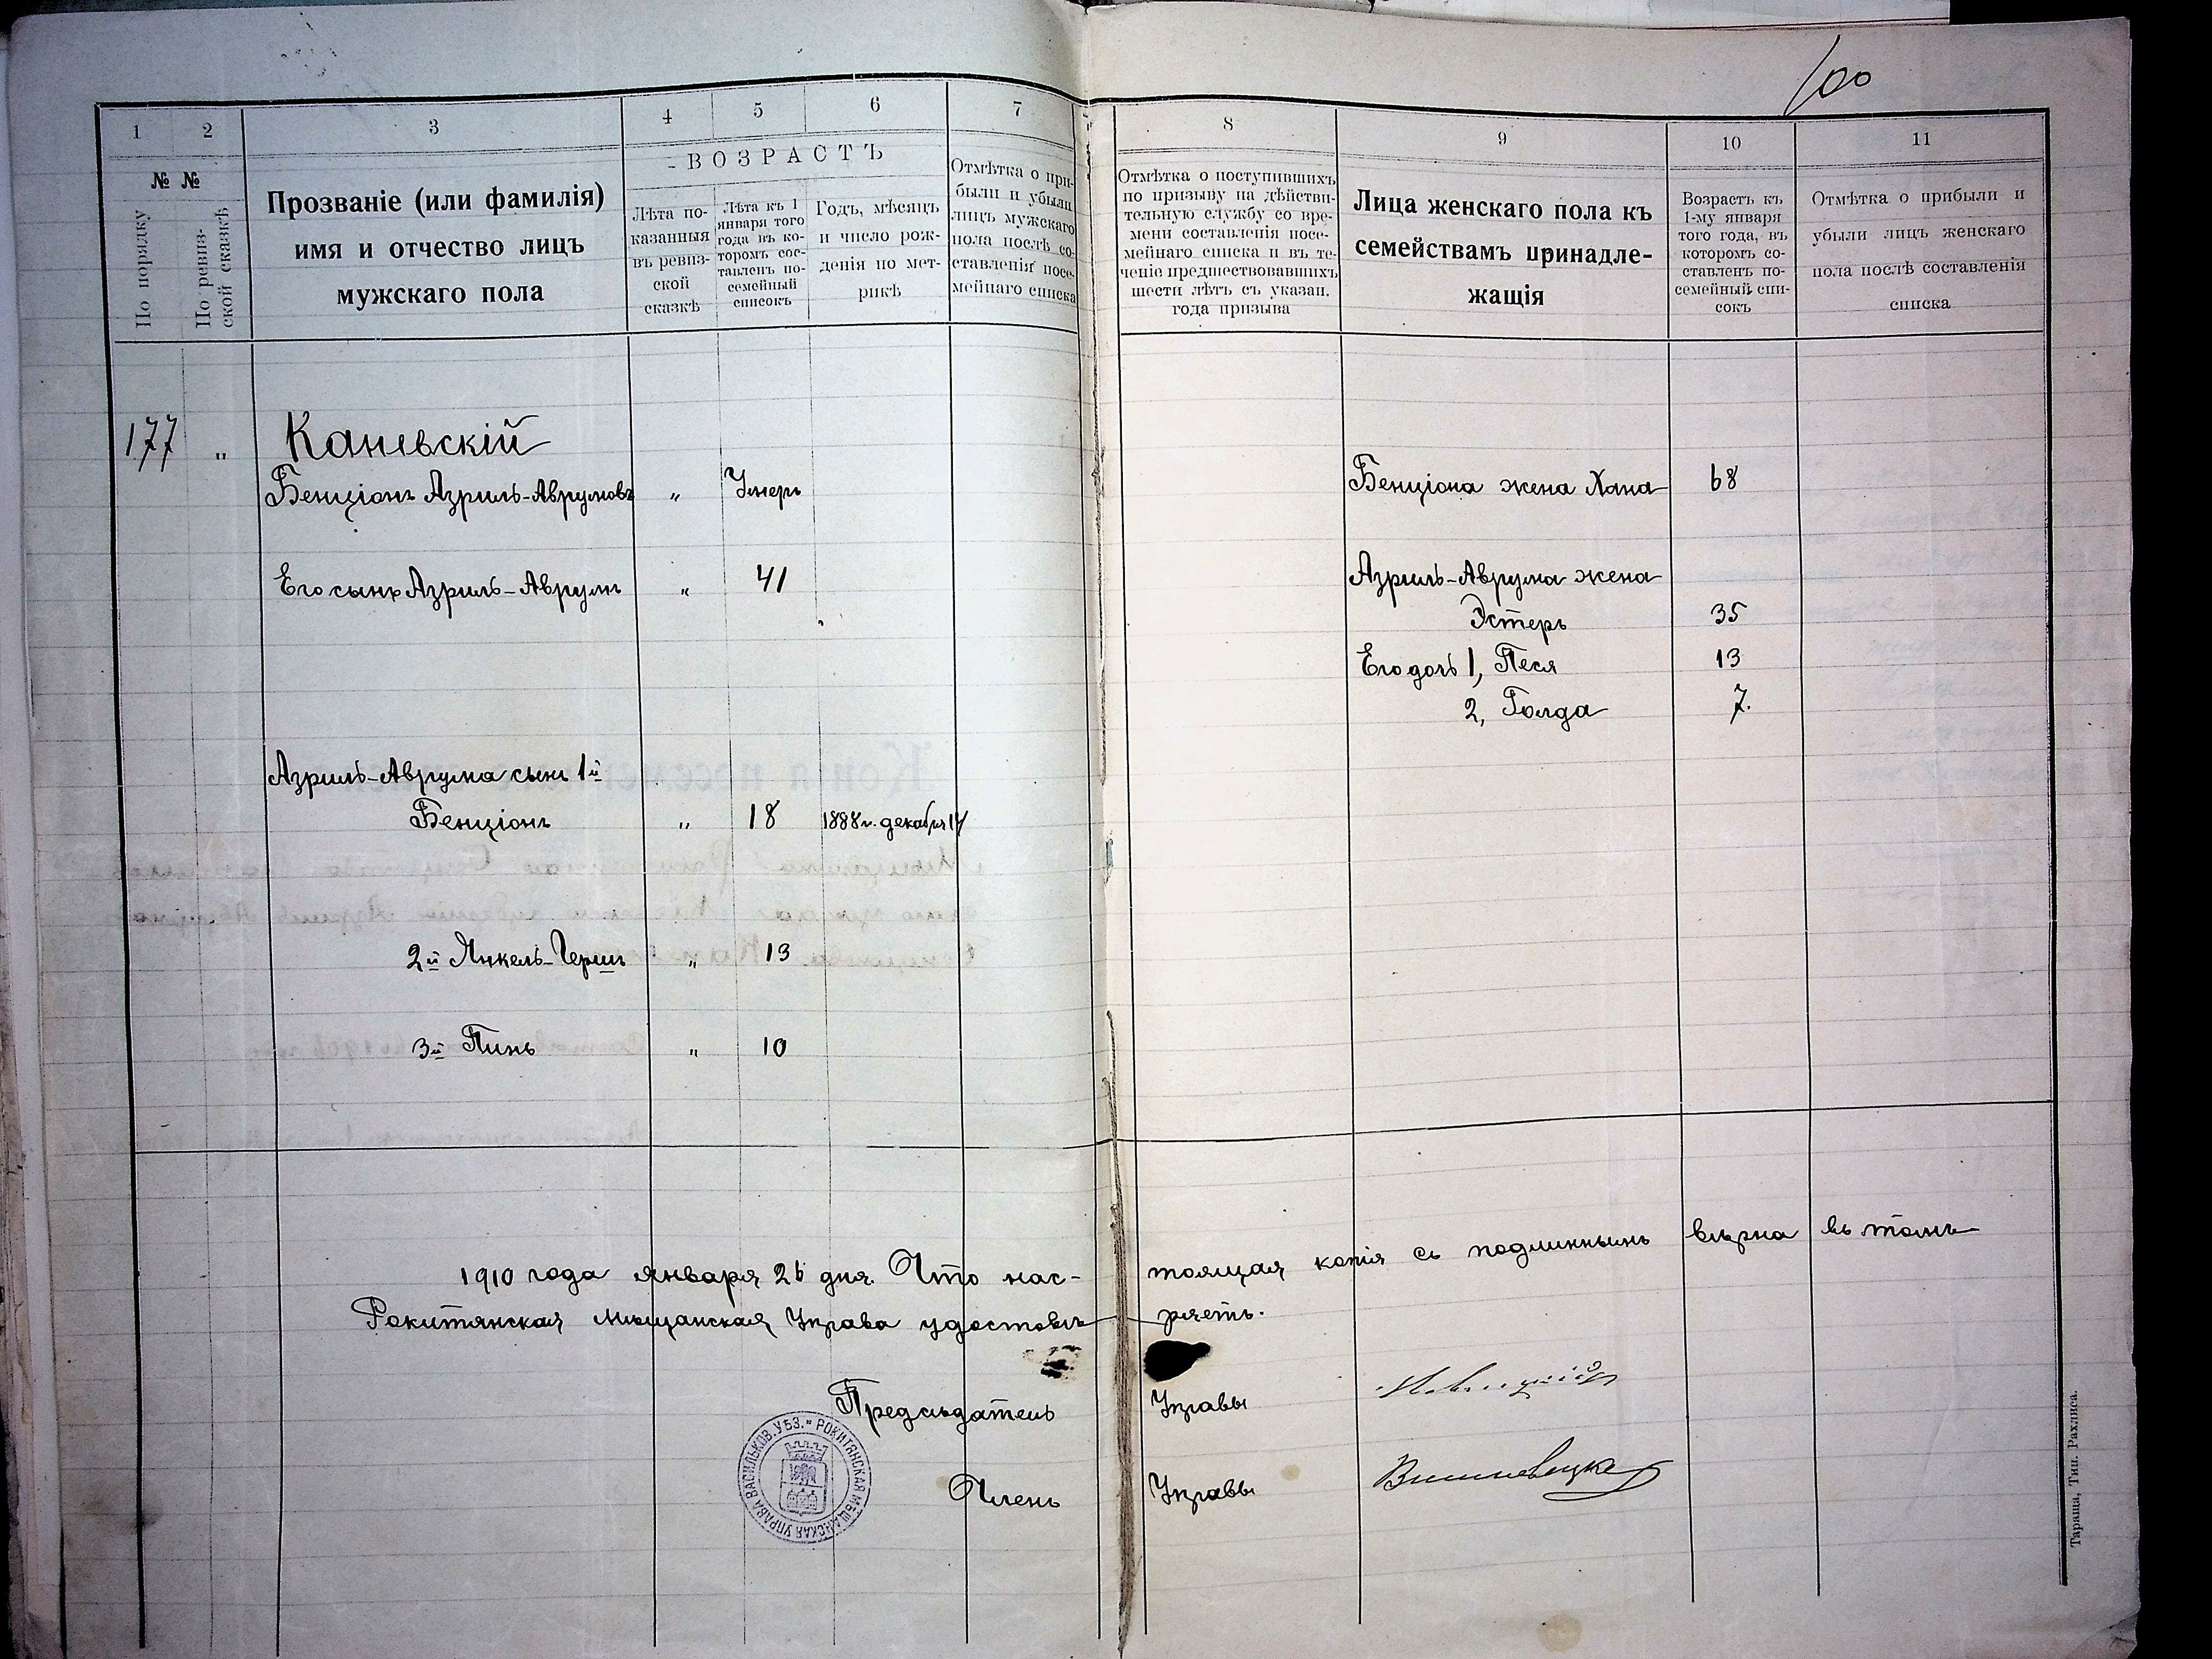 100
1
2
3
4
5
6
7
8
9
10
11
№ №
По порядку
По ревиз-
ской сказкѣ
Прозваніе (или фамилія)
имя и отчество лицъ
мужскаго пола
- ВОЗРАСТЪ
Лѣта по-
казанныя
въ ревиз-
ской
сказкѣ
Лѣта къ 1
января того
года въ ко-
торомъ сос-
тавленъ по-
семейный
списокъ
Годъ, мѣсяцъ
и число рож-
денія по мет-
рикѣ
Отмѣтка о при-
были и убыли
лицъ мужскаго
пола послѣ со-
ставленія посе-
мейнаго списка
Отмѣтка о поступившихъ
по призыву на дѣйстви-
тельную службу со вре-
мени составленія посе-
мейнаго списка и въ те-
ченіе предшествовавшихъ
шести лѣтъ съ указан.
года призыва
Лица женскаго пола къ
семействамъ принадле-
жащія
Возрастъ къ
1-му января
того года, въ
которомъ со-
ставленъ по-
семейный спи-
сокъ
Отмѣтка о прибыли и
убыли лицъ женскаго
пола послѣ составленія
списка
177 " Каневскій
Бенціонъ Азриль-Аврумовъ " Умеръ
Бенціона жена Хана 68
Его сынъ Азриль-Аврумъ " 41
Азриль-Аврума жена
Эстеръ 35
Его дочь 1, Песя 13
2, Голда 7.
Азриль-Аврума сынъ 1й
Бенціонъ " 18 1888 г. декабря 14
2й Янкель-Гершъ " 13
3й Пинь " 10
1910 года января 26 дня. Что нас- тоящая копія съ подлиннымъ вѣрна въ томъ
Рокитянская Мѣщанская Управа удостовѣ- ряетъ.
Предсѣдатель Управы
Членъ Управы
РОКИТЯНСКАЯ МѢЩАНСКАЯ УПРАВА ВАСИЛЬКОВ. УѢЗ.
Тараща, Тип. Рахлиса.